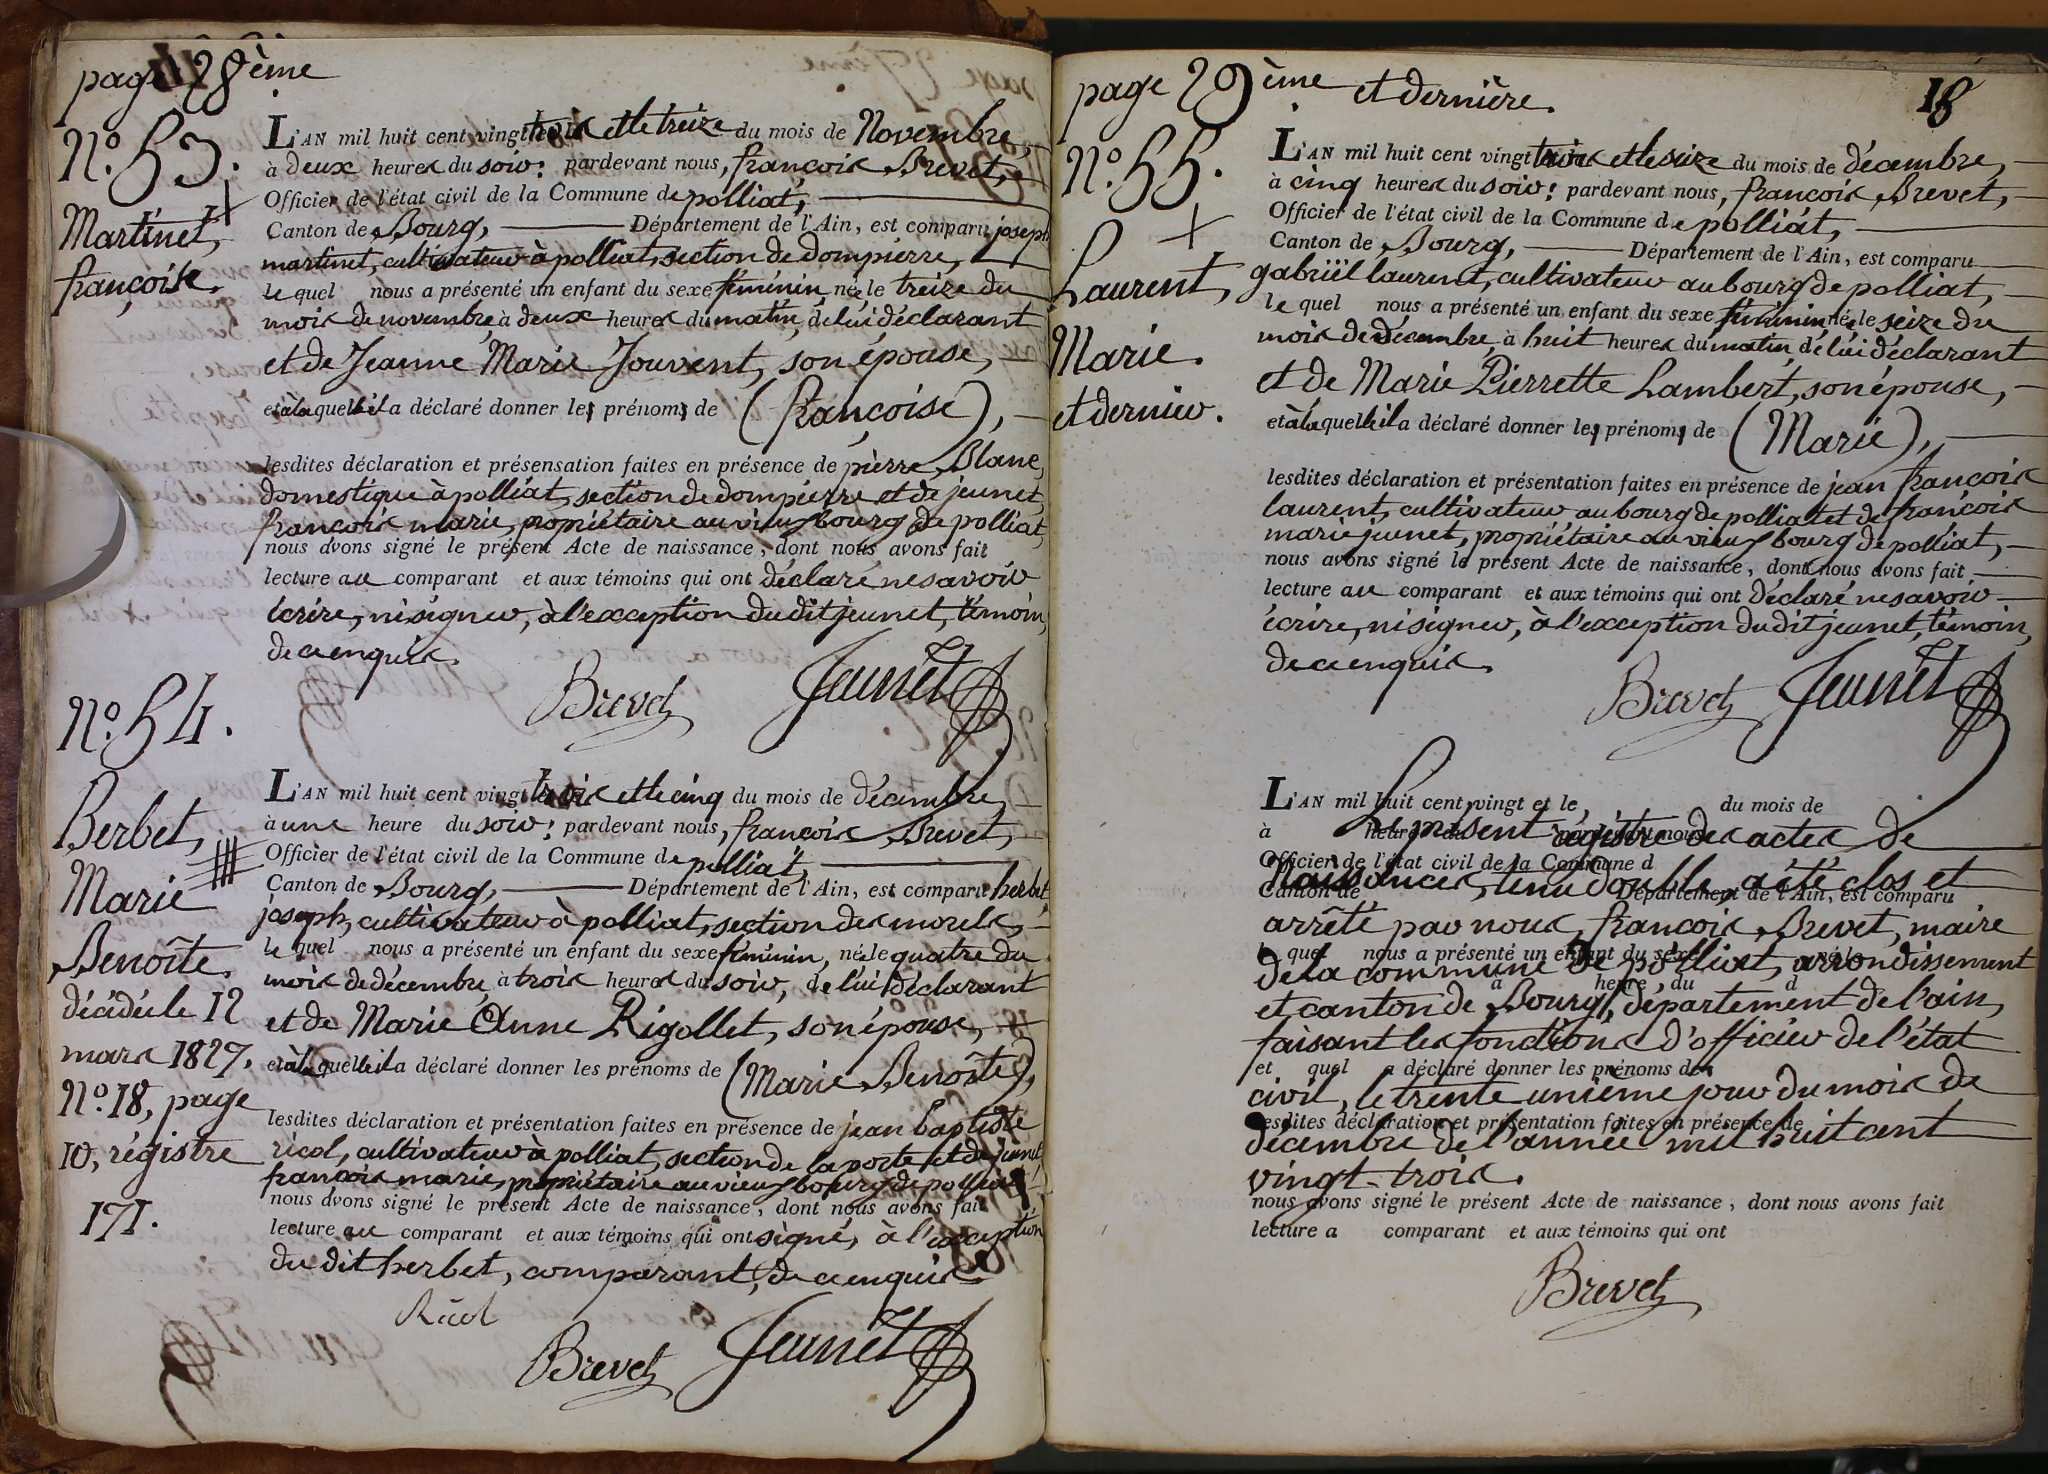 page 28ème
N.° 53.
Martinet,
françoise.
L'AN mil huit cent vingt trois et le treize du mois de Novembre,
à deux heures du soir: pardevant nous, françois Brevet,
Officier de l'état civil de la Commune de polliat,
Canton de Bourg, Département de l'Ain, est comparu joseph
martinet, cultivateur à polliat, section de dompierre,
le quel nous a présenté un enfant du sexe féminin, né le treize du
mois de novembre, à deux heures du matin, de lui déclarant
et de Jeanne Marie Jouvent, son épouse,
et à la quelle il a déclaré donner les prénoms de (françoise),
lesdites déclaration et présensation faites en présence de pierre Blanc,
domestique à polliat, section de dompierre et de jeunet,
françois marie, propriétaire au vieux bourg de polliat,
nous avons signé le présent Acte de naissance, dont nous avons fait
lecture au comparant et aux témoins qui ont déclaré ne savoir
écrire, ni signer, à l'exception du dit jeunet, témoin,
de ce enquis.
Brevet Jeunet
N.° 54.
Berbet,
Marie
Benoîte.
décédée le 12
mars 1827.
N.° 18, page
10, régistre
171.
L'AN mil huit cent vingt trois et le cinq du mois de décembre,
à une heure du soir: pardevant nous, françois Brevet,
Officier de l'état civil de la Commune de polliat,
Canton de Bourg, Département de l'Ain, est comparu herbet,
joseph, cultivateur à polliat, section des morels,
le quel nous a présenté un enfant du sexe féminin, né le quatre du
mois de décembre, à trois heures du soir, de lui déclarant
et de Marie Anne Rigollet, son épouse,
et à la quelle il a déclaré donner les prénoms de (Marie Benoîte),
lesdites déclaration et présentation faites en présence de jean baptiste
ricol, cultivateur à polliat, section de la poste et de jeunet,
françois marie, propriétaire au vieux bourg de polliat,
nous avons signé le présent Acte de naissance, dont nous avons fait
lecture au comparant et aux témoins qui ont signé, à l'exception
du dit herbet, comparant, de ce enquis.
Ricol
Brevet Jeunet
page 29ème et dernière.
18
N.° 55.
Laurent,
Marie.
et dernier.
L'AN mil huit cent vingt trois et le seize du mois de décembre,
à cinq heures du soir: pardevant nous, françois Brevet,
Officier de l'état civil de la Commune de polliat,
Canton de Bourg, Département de l'Ain, est comparu
gabriël laurent, cultivateur au bourg de polliat,
le quel nous a présenté un enfant du sexe féminin né le seize du
mois de décembre, à huit heures du matin, de lui déclarant
et de Marie Pierrette Lambert, son épouse,
et à la quelle il a déclaré donner les prénoms de (Marie),
lesdites déclaration et présentation faites en présence de jean françois
laurent, cultivateur au bourg de polliat et de françois
marie jeunet, propriétaire au vieux bourg de polliat,
nous avons signé le présent Acte de naissance, dont nous avons fait
lecture au comparant et aux témoins qui ont déclaré ne savoir
écrire, ni signer, à l'exception du dit jeunet, témoin,
de ce enquis.
Brevet Jeunet
L'AN mil huit cent vingt et le du mois de
à heure du pardevant nous
Le présent régistre des actes de
Officier de l'état civil de la Commune d
Naissances, tenu double, a été clos et
Canton de Département de l'Ain, est comparu
arrêté par nous, françois Brevet, maire
le quel nous a présenté un enfant du sexe né le
de la commune de polliat, arrondissement
à heure du d
et canton de Bourg, département de l'ain,
faisant les fonctions d'officier de l'état
et quel a déclaré donner les prénoms de
civil, le trente unième jour du mois de
lesdites déclaration et présentation faites en présence de
décembre de l'année mil huit cent
vingt-trois.
nous avons signé le présent Acte de naissance, dont nous avons fait
lecture a comparant et aux témoins qui ont
Brevet